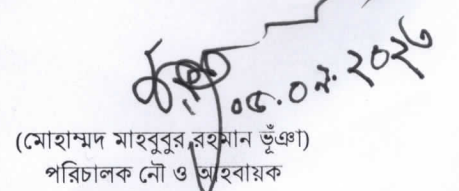 ০৫.০৮.২০২৩
(মোহাম্মদ মাহবুবুর রহমান ভূঁঞা)
পরিচালক নৌ ও আহবায়ক